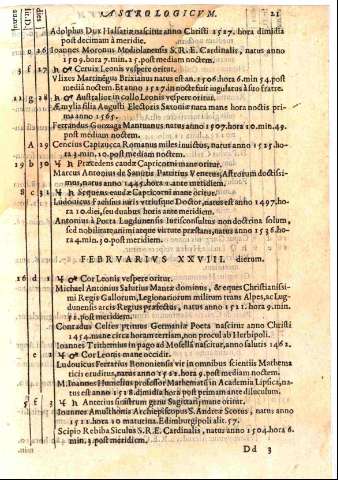 ASTROLOGICVM. 21
Adolphus Dux Holsatiæ, nascitur anno Christi 1527. hora dimidia
post decimam à meridie.
n 26 Ioannes Moronus Mediolanensis S.R.E. Cardinalis, natus anno
1509. hora 7. min. 25. post mediam noctem.
5 f 27 ♄ ♂ Ceruix Leonis vespere oritur.
Vlixes Martinengus Brixianus natus est an. 1506. hora 6. min 54. post
mediā noctem. Et an. 1527. in nocte fuit iugulatus à suo fratre.
22 g 28 ♄ ♂ Australior in collo Leonis vespere oritur.
Æmylia filia Augusti Electoris Saxoniæ nata mane hora noctis pri-
ma anno 1565.
Ferrandus Gonzaga Mantuanus natus anno 1507. hora 10. min. 49.
post mediam noctem.
A 29 Cencius Capizucca Romanus miles inuictus, natus anno 1525. ho-
ra 3. min. 10. post mediam noctem.
19 b 30 ♄ ♃ Præcedens caudæ Capricorni mane oritur.
Marcus Antonius de Sanutis Patritius Venetus, Astrorum doctissi-
mus, natus anno 1445. hora 2. ante meridiem.
8 c 31 ♃ ♄ Sequens caudæ Capricorni mane oritur.
Ludouicus Fachsius iuris vtriusque Doctor, natus est anno 1497. ho-
ra 10. diei, seu duabus horis ante meridiem.
Antonius à Porta Lugdunensis Iurisconsultus non doctrina solum,
sed nobilitate, animi atque virtute præstans, natus anno 1536. ho-
ra 4. min. 30. post meridiem.
FEBRVARIVS XXVIII. dierum.
16 d 1 ♃ ♂ Cor Leonis vespere oritur.
Michael Antonius Salutius Mantæ dominus, & eques Christianissi-
mi Regis Gallorum, Legionariorum militum trans Alpes, ac Lug-
dunensis arcis Regius præfectus, natus anno 1511. hora 9. min.
51. post meridiem.
Conradus Celtes primus Germaniæ Poeta nascitur anno Christi
1454. mane circa horam tertiam, non procul ab Herbipoli.
Ioannes Trithemius in pago ad Mosellā nascitur, anno salutis 1462.
e 2 ♃ ♂ Cor Leonis mane occidit.
Ludouicus Ferrarius Bononiensis vir in omnibus scientiis Mathema
ticis eruditus, natus anno 1522. hora 9. post mediam noctem.
M. Ioannes Humelius professor Mathematū in Academia Lipsica, na-
tus est anno 1518. dimidia hora post primam ante diluculum.
5 f 3 ♃ ♄ Anterius sinistrum genu Sagittarij mane oritur.
Ioannes Amulthonis Archiepiscopus S. Andreæ Scotus, natus anno
1512. hora 10 matutina. Edimburgi poli alt. 57.
Scipio Rebiba Siculus S.R.E. Cardinalis, natus anno 1504. hora 6.
min. 3. post meridiem.
Dd 3